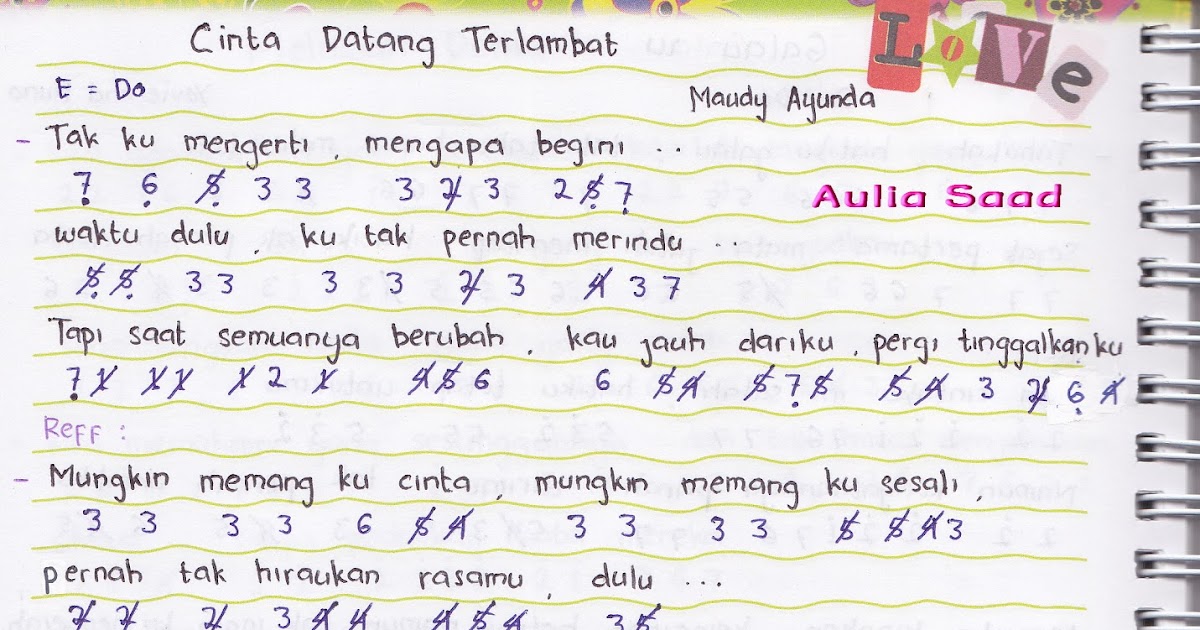 LOVE
Cinta Datang Terlambat
E = Do
Maudy Ayunda
- Tak ku mengerti, mengapa begini ..
7 6 5 3 3 3 2 3 2 5 7
Aulia Saad
waktu dulu, ku tak pernah merindu ...
5 5 3 3 3 3 2 3 4 3 7
Tapi saat semuanya berubah, kau jauh dariku, pergi tinggalkanku
7 1 1 1 1 2 1 4 5 6 6 5 4 5 7 5 5 4 3 2 6 1
Reff :
- Mungkin memang ku cinta, mungkin memang ku sesali,
3 3 3 3 6 5 4 3 3 3 3 5 5 4 3
pernah tak hiraukan rasamu, dulu ...
2 2 2 3 4 4 4 5 4 3 5